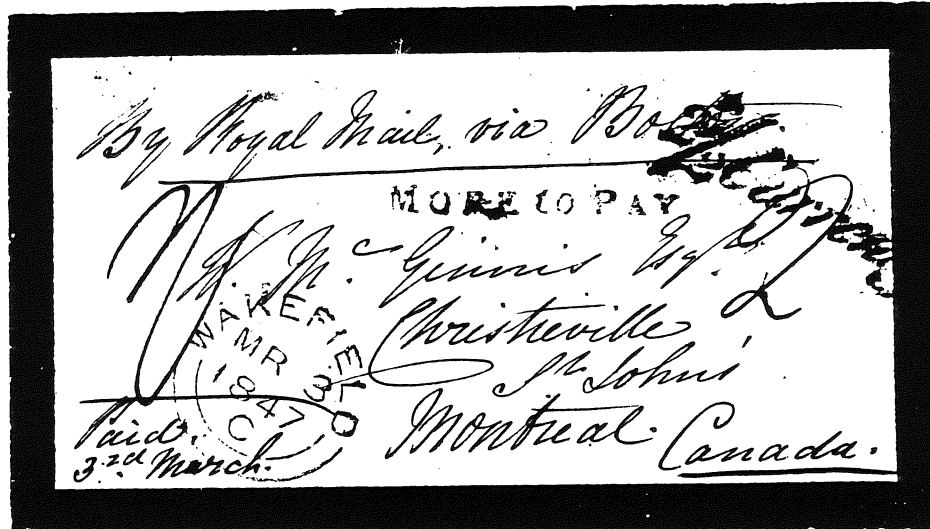 By Royal Mail, via
MORE to PAY
W. Mc Ginnis Esqre
Christieville
St Johns
Montreal.
Canada.
WAKEFIELD
MR 3
1847
C
Paid.
3rd March.
2